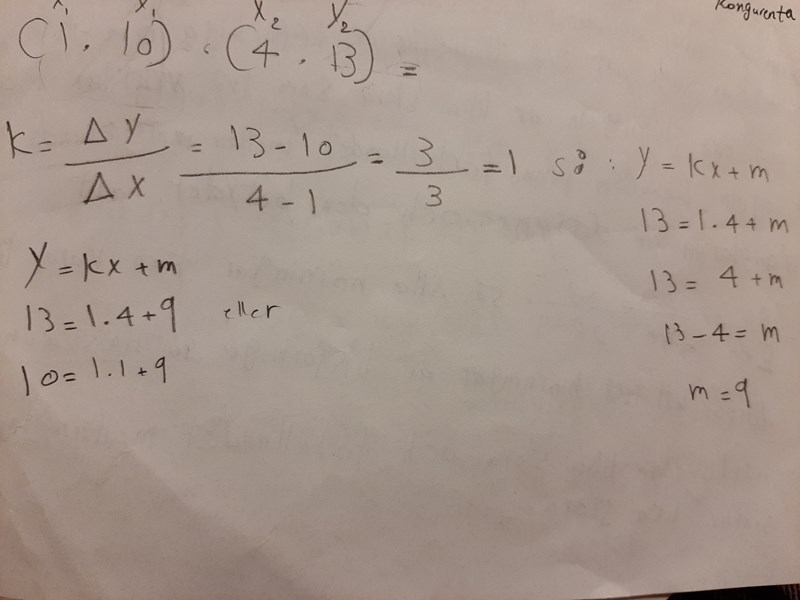 Kongurenta
x₁ y₁ x₂ y₂
(1. 10) . (4 . 13) =
k = Δy/Δx = 13-10/4-1 = 3/3 = 1 så : y = kx + m
13 = 1.4 + m
13 = 4 + m
13 - 4 = m
m = 9
y = kx + m
13 = 1.4 + 9 eller
10 = 1.1 + 9